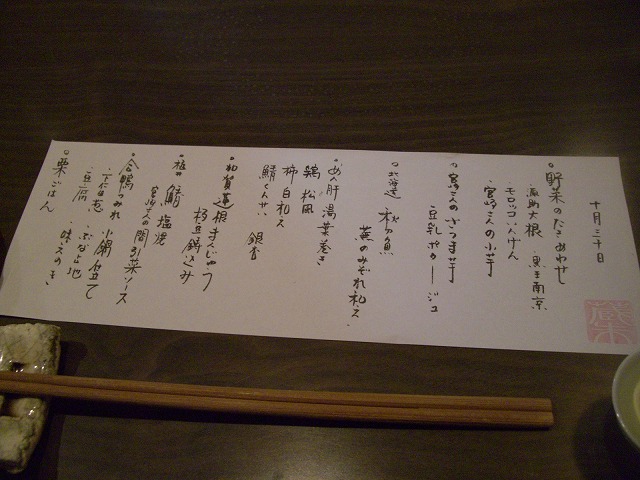 十月三十日
野菜のたきあわせ
源助大根 黒皮南京
モロッコいんげん
宮崎さんの小芋
宮崎さんのさつま芋
豆乳ポタージュ
北海道 秋魚
蕪のみぞれ和え
あん肝湯葉巻き
鶏松風
柿白和え
鯖くんせい 銀杏
加賀蓮根まんじゅう
枝豆鋳込み
福井 鯖塩焼
宮崎さんの間引菜ソース
合鴨つみれ 小鍋仕立て
下仁田葱
豆腐
栗ごはん
蔵